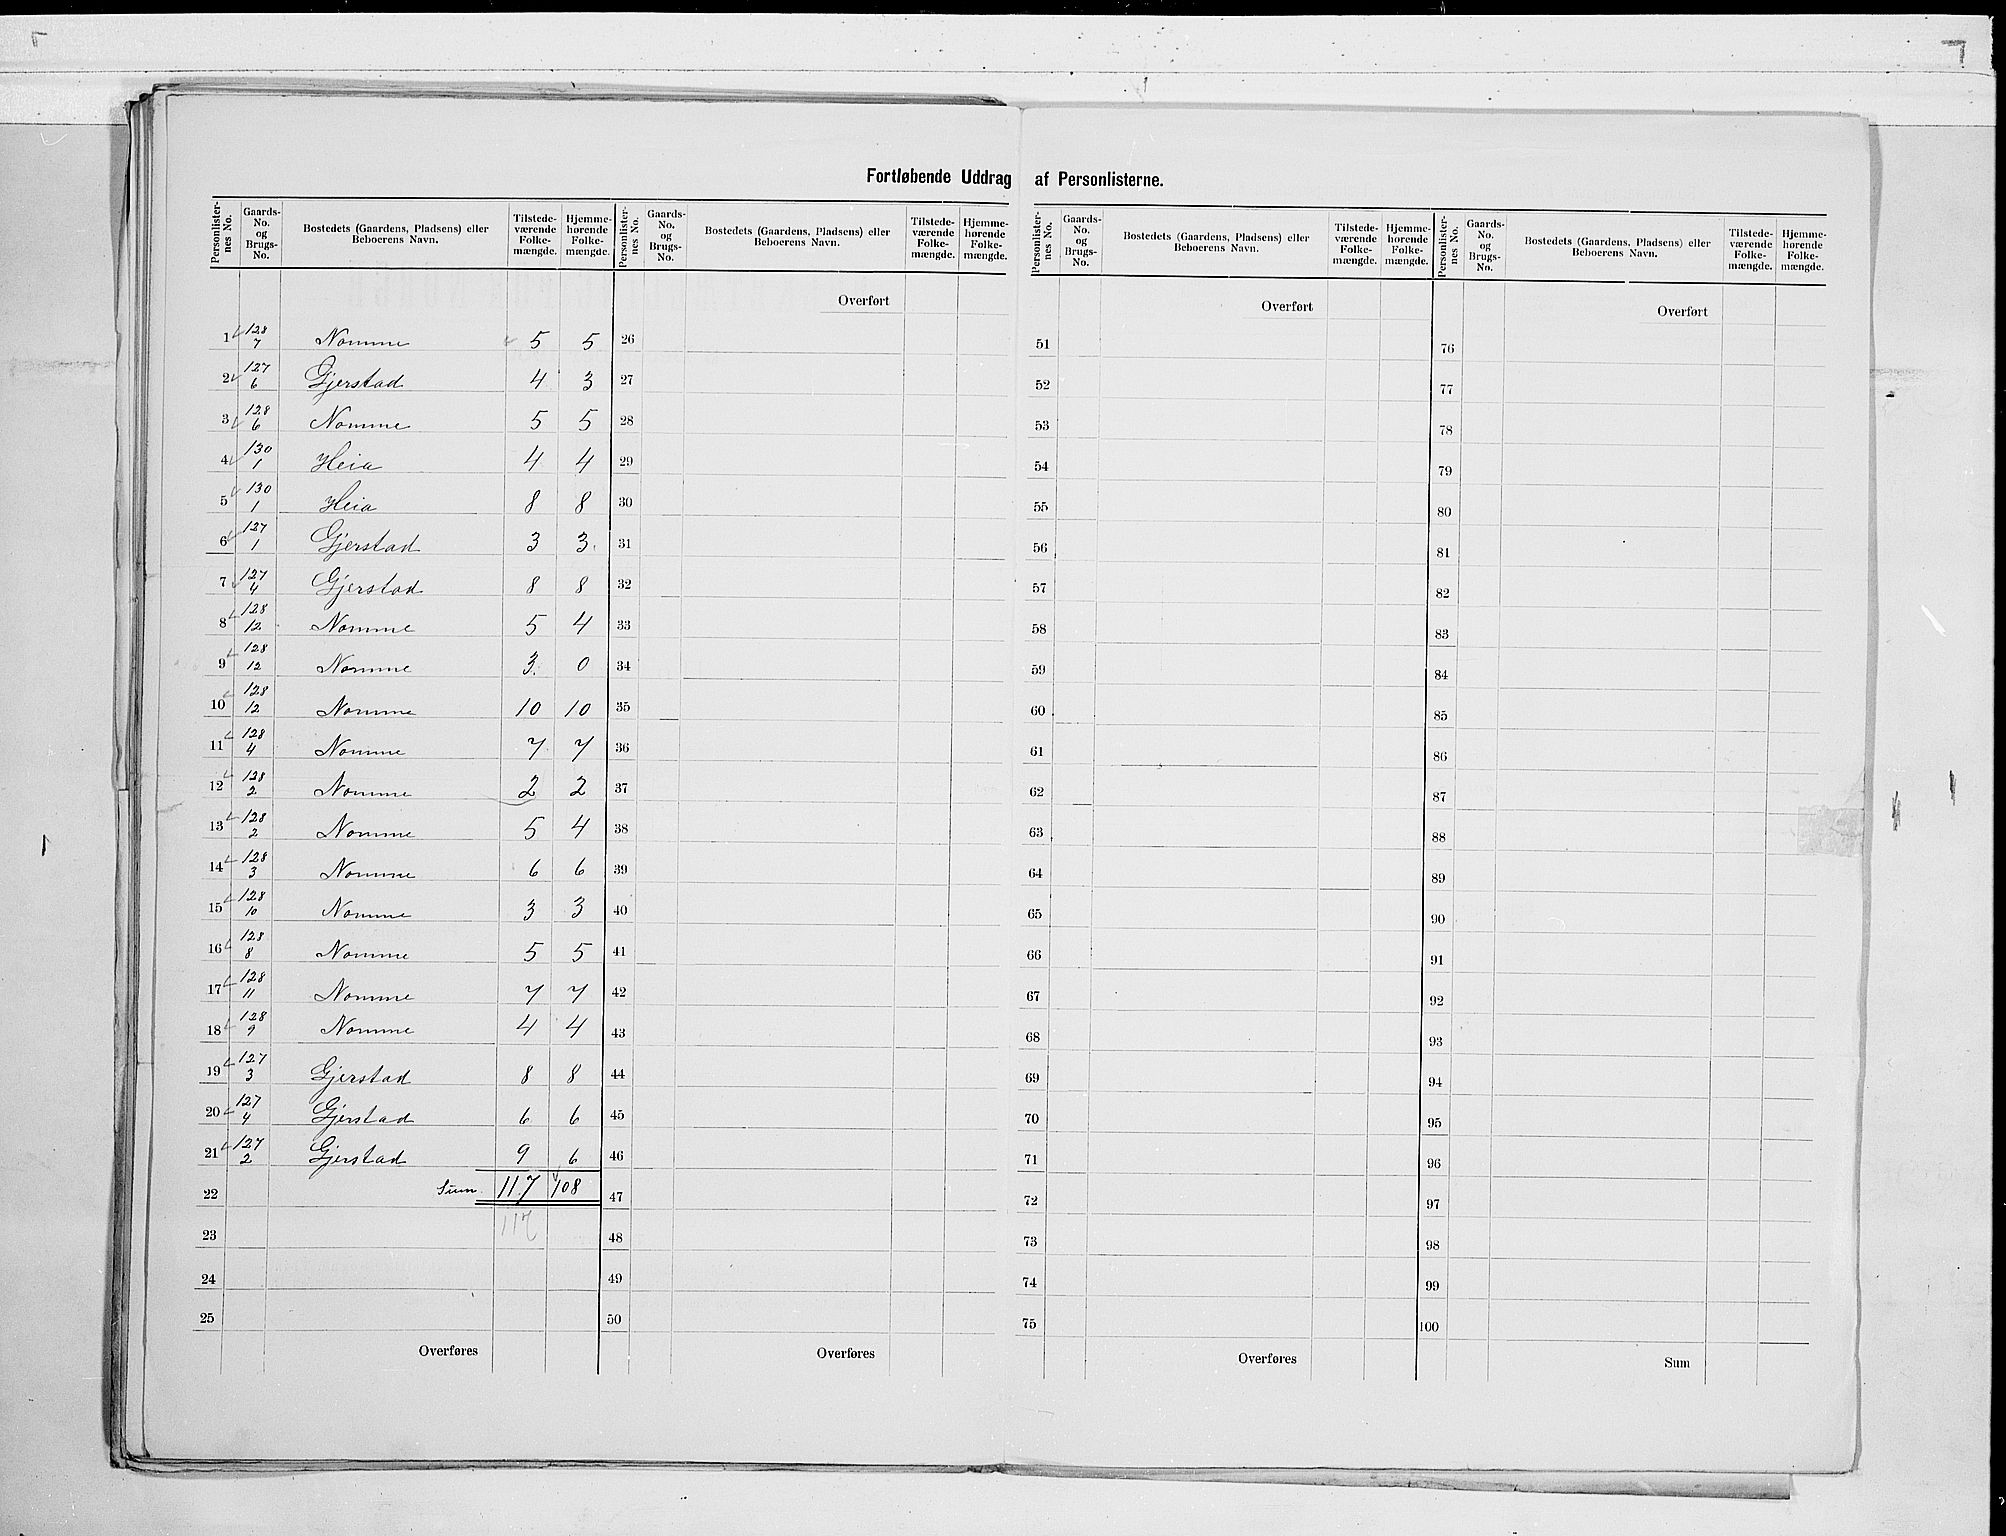 Fortløbende Uddrag af Personlisterne.
Personlisternes No. Gaards-No. og Brugs-No. Bostedets (Gaardens, Pladsens) eller Beboerens Navn. Tilstedeværende Folkemængde. Hjemmehørende Folkemængde.
1 128/7 Nomme 5 5
2 127/6 Gjerstad 4 3
3 128/6 Nomme 5 5
4 130/1 Heia 4 4
5 130/1 Heia 8 8
6 127/1 Gjerstad 3 3
7 127/4 Gjerstad 8 8
8 128/12 Nomme 5 4
9 128/12 Nomme 3 0
10 128/12 Nomme 10 10
11 128/4 Nomme 7 7
12 128/2 Nomme 2 2
13 128/2 Nomme 5 4
14 128/3 Nomme 6 6
15 128/10 Nomme 3 3
16 128/8 Nomme 5 5
17 128/11 Nomme 7 7
18 128/9 Nomme 4 4
19 127/3 Gjerstad 8 8
20 127/4 Gjerstad 6 6
21 127/2 Gjerstad 9 6
22 Sum 117 108
23 117
24
25
Overføres
Personlisternes No. Gaards-No. og Brugs-No. Bostedets (Gaardens, Pladsens) eller Beboerens Navn. Tilstedeværende Folkemængde. Hjemmehørende Folkemængde.
Overført
26
27
28
29
30
31
32
33
34
35
36
37
38
39
40
41
42
43
44
45
46
47
48
49
50
Overføres
Personlisternes No. Gaards-No. og Brugs-No. Bostedets (Gaardens, Pladsens) eller Beboerens Navn. Tilstedeværende Folkemængde. Hjemmehørende Folkemængde.
Overført
51
52
53
54
55
56
57
58
59
60
61
62
63
64
65
66
67
68
69
70
71
72
73
74
75
Overføres
Personlisternes No. Gaards-No. og Brugs-No. Bostedets (Gaardens, Pladsens) eller Beboerens Navn. Tilstedeværende Folkemængde. Hjemmehørende Folkemængde.
Overført
76
77
78
79
80
81
82
83
84
85
86
87
88
89
90
91
92
93
94
95
96
97
98
99
100
Sum